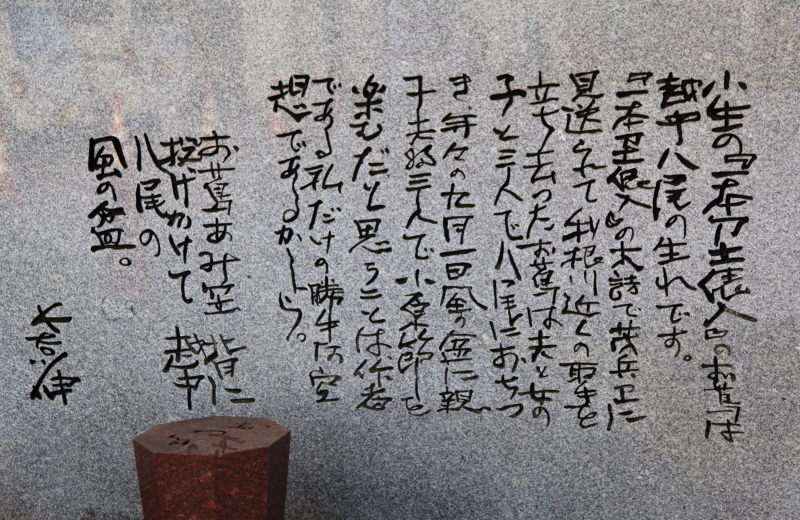 小生の『一本刀土俵入』のお蔦は
越中八尾の生れです。
『一本刀土俵入』の大詰で茂兵衛に
見送られて利根川近くの取手を
立ち去ったお蔦は夫と女の
子と三人で八尾におちつ
き、年々の九月一日風の盆に親
子夫婦三人で小原節を
楽むだと思うことは作者
である私だけの勝手な空
想であるかしら。
お蔦あみ笠 背に
投げかけて 越中
八尾の
風の盆。
長谷川 伸